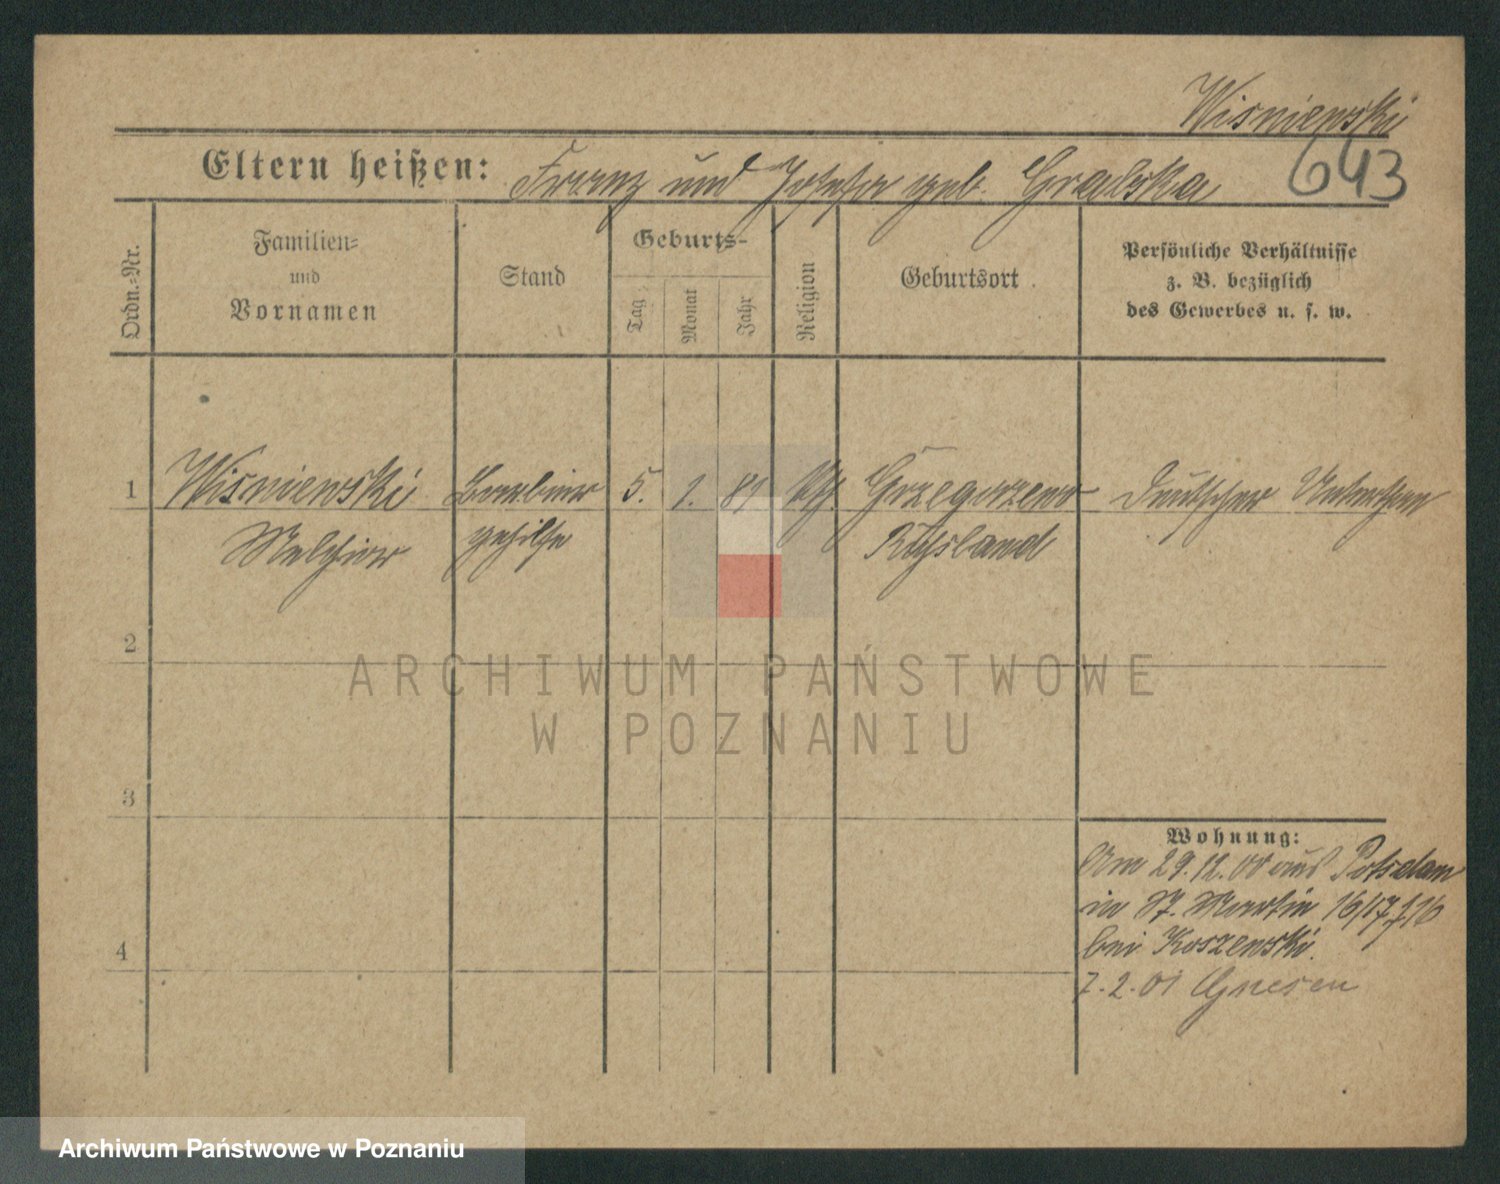 Wisniewski
643
Eltern heißen: Franz und Josefa geb. Gralska
Ordn.=Nr.
Familien=
und
Vornamen
Stand
Geburts-
Tag
Monat
Jahr
Religion
Geburtsort
Persönliche Verhältnisse
z. B. bezüglich
des Gewerbes u. s. w.
1 Wisniewski Barbier 5. 1. 81 kth. Grzegorzewo Deutscher
Melchior gehilfe Rußland
2
ARCHIWUM PAŃSTWOWE
W POZNANIU
3
Wohnung:
Am 29.12.00 aus Potsdam
in St. Martin 16/17
bei Koszewski.
4
7.2.01 Gnesen
Archiwum Państwowe w Poznaniu